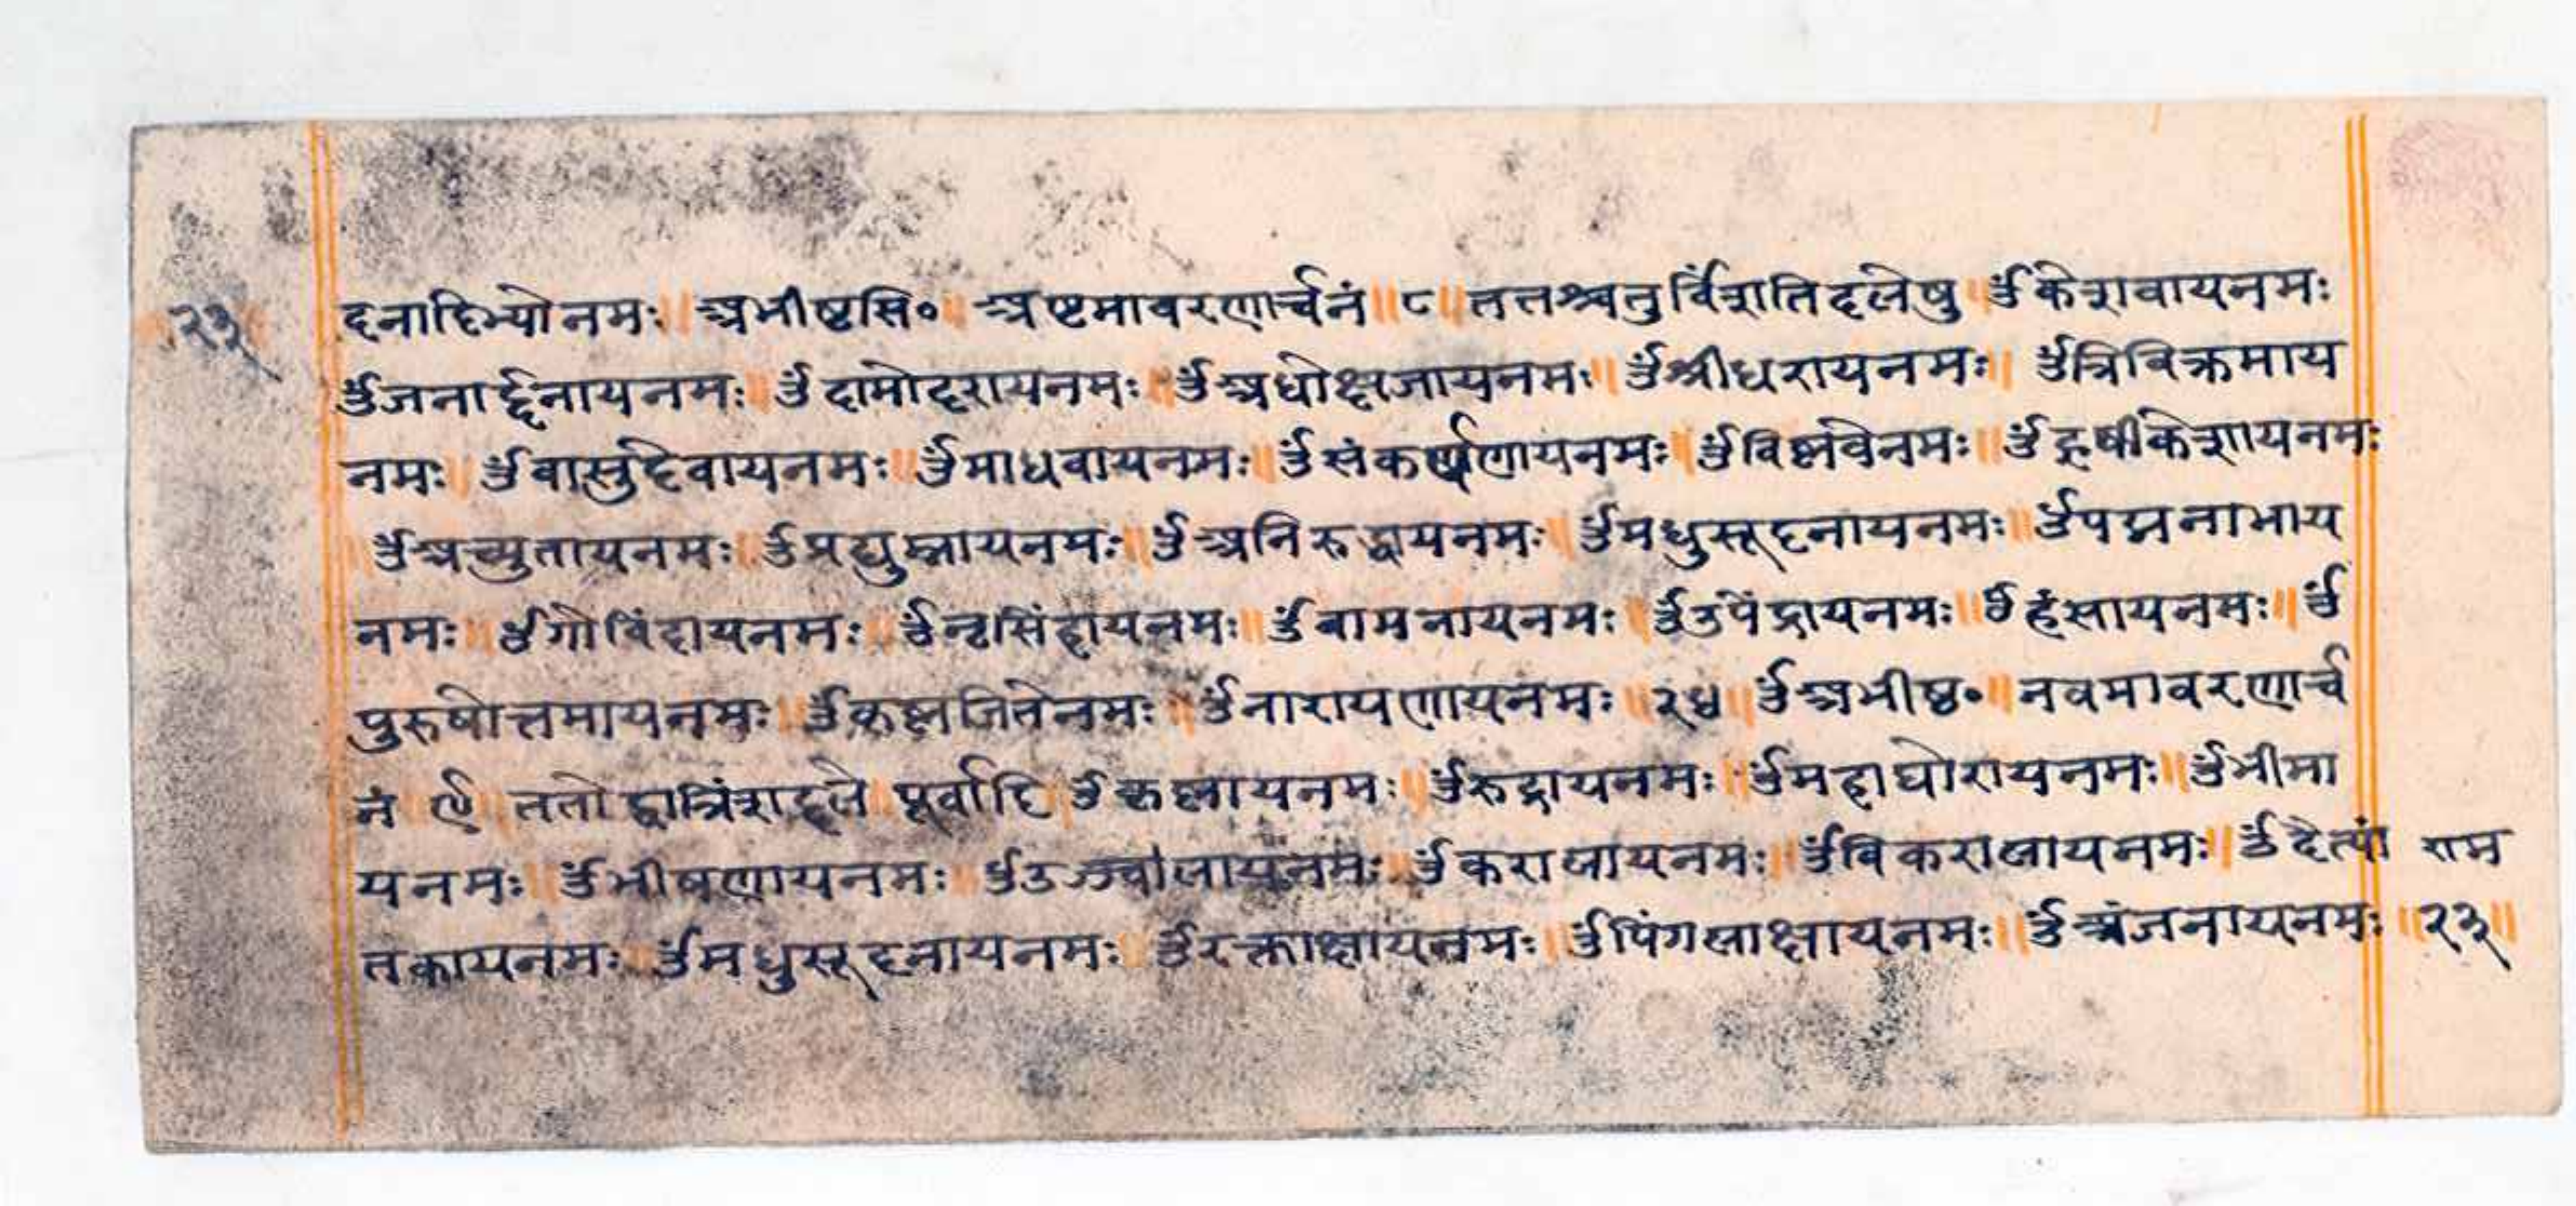 २३ दनादिभ्योनमः ॥ अभीष्टसि॰ ॥ अष्टमावरणार्चनं ॥ ८ ॥ ततश्चतुर्विंशतिदलेषु ॥ ॐकेशवायनमः
ॐजनार्द्दनायनमः ॥ ॐदामोदरायनमः ॥ ॐअधोक्षजायनमः ॥ ॐश्रीधरायनमः ॥ ॐत्रिविक्रमाय
नमः ॥ ॐवासुदेवायनमः ॥ ॐमाधवायनमः ॥ ॐसंकर्षणायनमः ॥ ॐविष्णवेनमः ॥ ॐहृषीकेशायनमः
॥ ॐअच्युतायनमः ॥ ॐप्रद्युम्नायनमः ॥ ॐअनिरुद्धायनमः ॥ ॐमधुसूदनायनमः ॥ ॐपद्मनाभाय
नमः ॥ ॐगोविंदायनमः ॥ ॐनृसिंहायनमः ॥ ॐवामनायनमः ॥ ॐउपेंद्रायनमः ॥ ॐहंसायनमः ॥ ॐ
पुरुषोत्तमायनमः ॥ ॐकृष्णजितेनमः ॥ ॐनारायणायनमः ॥ २४ ॥ ॐअभीष्ठ॰ ॥ नवमावरणार्च
नं ॥ ९ ॥ ततोद्वात्रिंशद्दले ॥ पूर्वादि ॥ ॐकृष्णायनमः ॥ ॐरुद्रायनमः ॥ ॐमहाघोरायनमः ॥ ॐभीमा
यनमः ॥ ॐभीषणायनमः ॥ ॐउज्ज्वालायनमः ॥ ॐकरालायनमः ॥ ॐविकरालायनमः ॥ ॐदैत्यां राम
तकायनमः ॥ ॐमधुसूदनायनमः ॥ ॐरक्ताक्षायनमः ॥ ॐपिंगलाक्षायनमः ॥ ॐअंजनायनमः ॥ २३ ॥